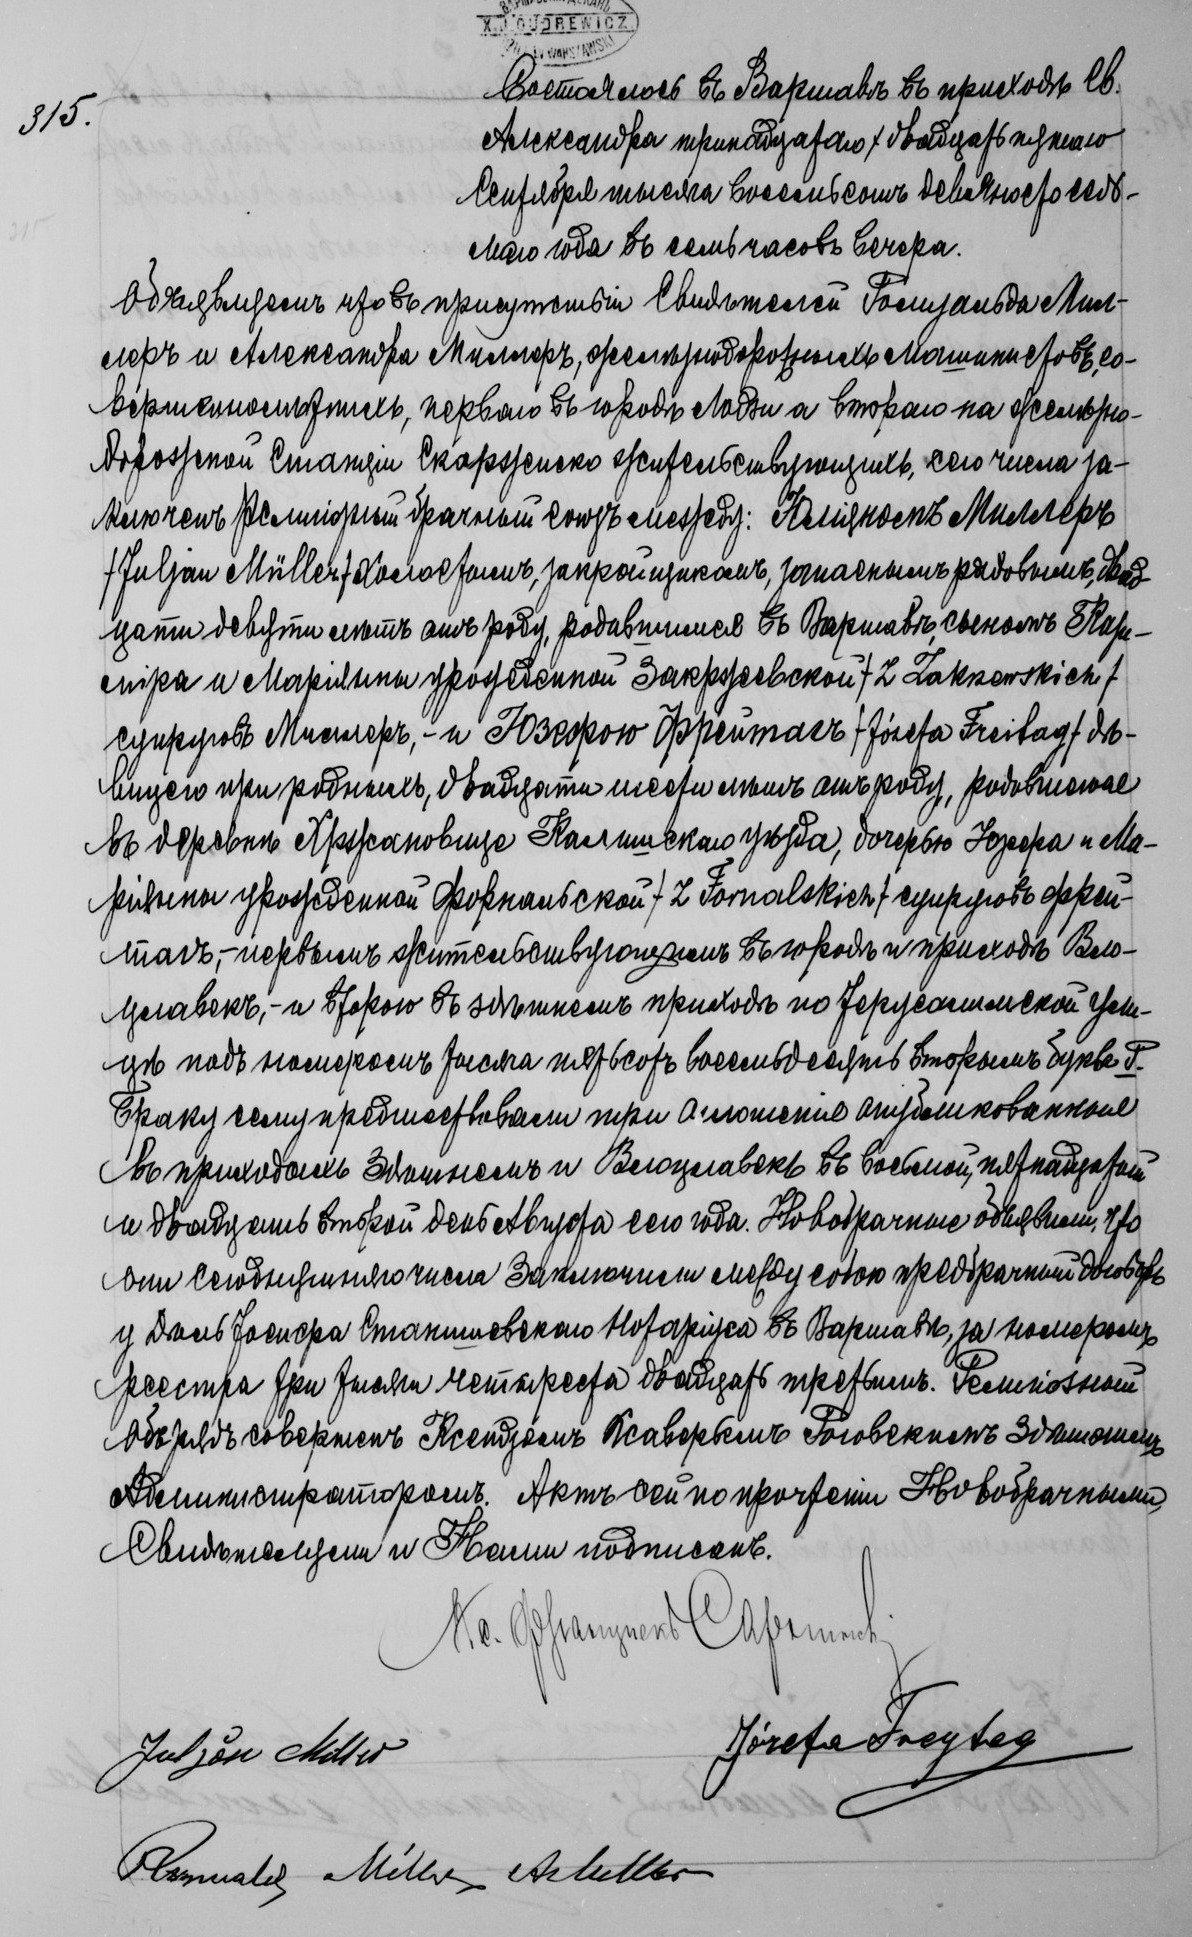 X.J. GUDREWICZ
315.
Состоялось въ Варшавѣ въ приходѣ Св.
Александра тринадцатаго / двадцать пятаго
Сентября тысяча восемьсотъ девяносто седь-
маго года въ семь часовъ вечера.
Объявляемъ что въ присутствіи Свидѣтелей Ромуальда Мил-
леръ и Александра Миллеръ, желѣзнодорожныхъ машинистовъ, со-
вершеннолѣтнихъ, перваго въ городѣ Лодзи а втораго на желѣзно-
дорожной Станціи Скаржиско жительствующихъ, сего числа за-
ключенъ Религіозный брачный союзъ между: Юліяномъ Миллеръ
/Juljan Müller/ холостымъ, закройщикомъ, запаснымъ рядовымъ, двад-
цати девяти лѣтъ отъ роду, родившимся въ Варшавѣ, сыномъ Кази-
міра и Маріянны урожденной Закржевской / Z Zakrzewskich /
супруговъ Миллеръ, - и Юзефою Фрейтагъ /Józefa Freitag/ дѣ-
вицею при родныхъ, двадцати шести лѣтъ отъ роду, родившеюся
въ деревнѣ Хржановице Калишскаго уѣзда, дочерью Юзефа и Ма-
ріянны урожденной Форнальской / Z Fornalskich / супруговъ Фрей-
тагъ, - первымъ жительствующимъ въ городѣ и приходѣ Вло-
цлавекъ, - и второю въ здѣшнемъ приходѣ по Іерусалимской ули-
цѣ подъ номеромъ тысяча пятьсотъ восемьдесятъ вторымъ буква Г.
Браку сему предшествовали три оглашенія опубликованныя
въ приходахъ Здѣшнемъ и Влоцлавекъ въ восьмой, пятнадцатый
и двадцать второй день Августа сего года. Новобрачные объявили, что
они сегодняшняго числа заключили между собою предбрачный договоръ
у Іосифа Нотаріуса въ Варшавѣ, за номеромъ
реестра три тысячи четыреста двадцать третьимъ. Религіозный
обрядъ совершенъ Ксендзомъ Ксаверымъ Роговскимъ Здѣшнимъ
Администраторомъ. Актъ сей по прочтеніи Новобрачными,
Свидѣтелями и Нами подписанъ.
Кс. Францишекъ
Juljan Miller
Józefa Freytag
Romuald Miller A Miller